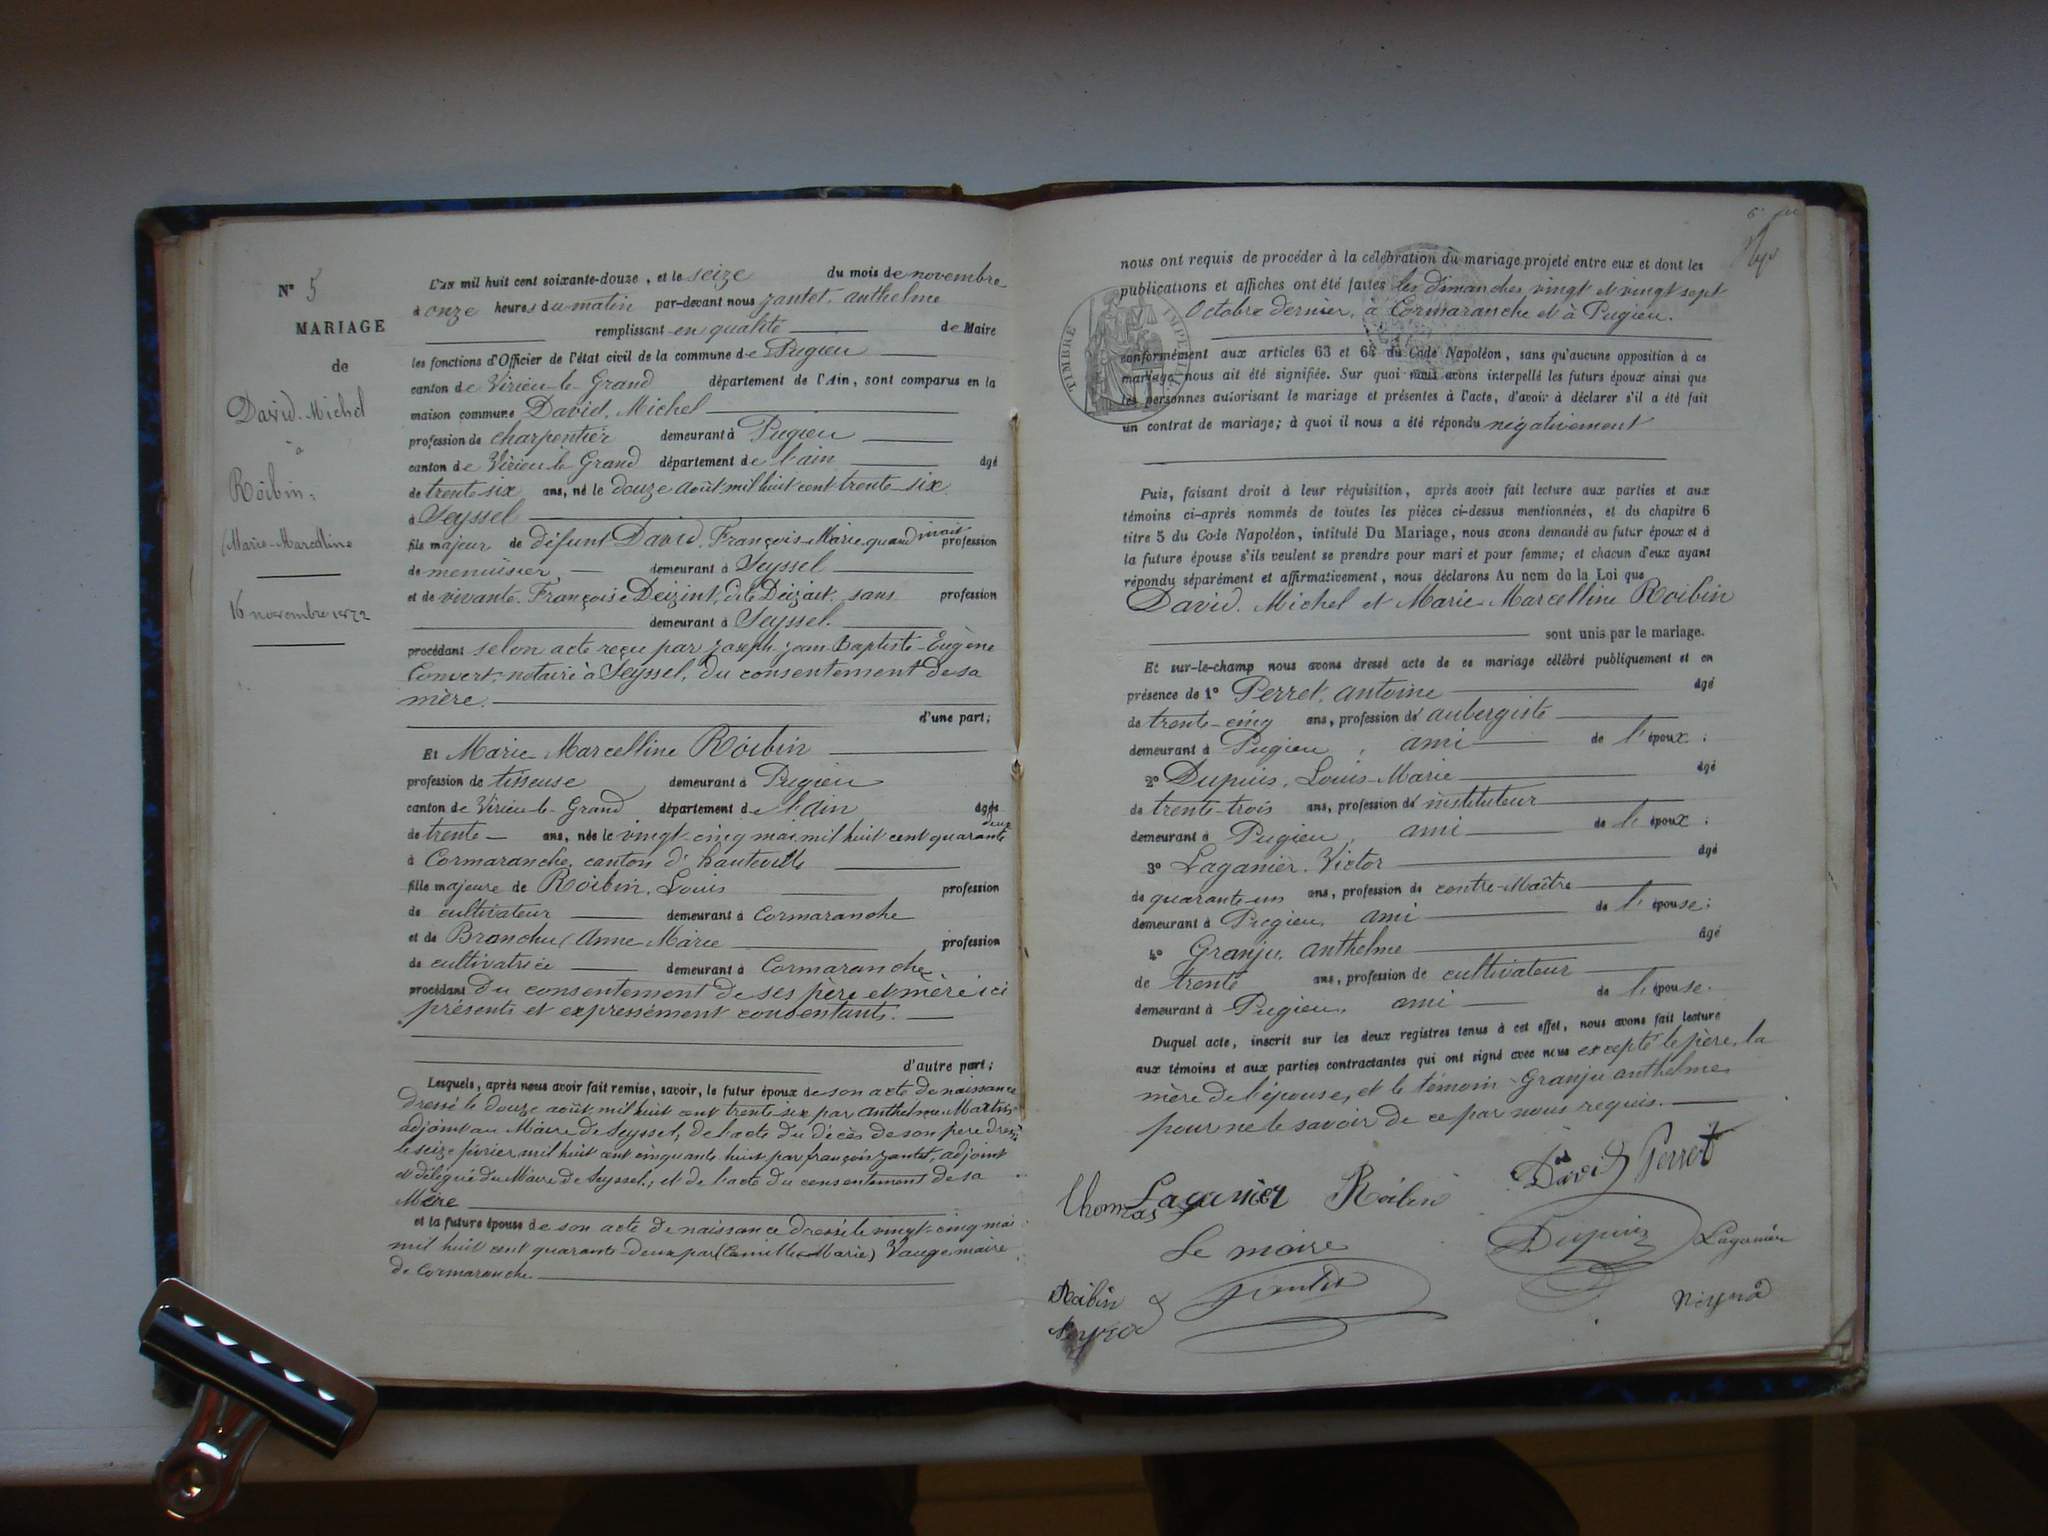 N° 5
MARIAGE
de
David. Michel
à
Roibin
Marie-Marcelline
16 novembre 1872
L'an mil huit cent soixante-douze, et le seize du mois de novembre
à onze heures du matin par-devant nous Jantet, anthelme
remplissant en qualité de Maire
les fonctions d'Officier de l'état civil de la commune de Pugieu
canton de Virieu-le-Grand département de l'Ain, sont comparus en la
maison commune David, Michel
profession de charpentier demeurant à Pugieu
canton de Virieu-le-Grand département de l'ain âgé
de trente-six ans, né le douze août mil huit cent trente-six
à Seyssel
fils majeur de défunt David, François-Marie, quand vivait profession
de menuisier demeurant à Seyssel
et de vivante Françoise Deizint, dite Deizait, sans profession
demeurant à Seyssel.
procédant selon acte reçu par Joseph-Jean-Baptiste-Eugène
Convert, notaire à Seyssel, du consentement de sa
mère.
d'une part;
Et Marie-Marcelline Roibin
profession de tisseuse demeurant à Pugieu
canton de Virieu-le-Grand département de l'ain âgée
de trente ans, née le vingt-cinq mai mil huit cent quarante deux
à Cormaranche, canton d'hauteville
fille majeure de Roibin, Louis profession
de cultivateur demeurant à Cormaranche
et de Branchu, Anne-Marie profession
de cultivatrice demeurant à Cormaranche,
procédant du consentement de ses père et mère ici
présents et expressément consentants.
d'autre part;
Lesquels, après nous avoir fait remise, savoir, le futur époux de son acte de naissance
dressé le douze août mil huit cent trente six par Anthelme Martin
adjoint au Maire de Seyssel, de l'acte du décès de son père dressé
le seize février mil huit cent cinquante-huit par françois Jantet, adjoint
et délégué du Maire de Seyssel, et de l'acte du consentement de sa
Mère
et la future épouse de son acte de naissance dressé le vingt-cinq mai
mil huit cent quarante-deux par (Camille-Marie) Vauge maire
de Cormaranche.
nous ont requis de procéder à la célébration du mariage projeté entre eux et dont les
publications et affiches ont été faites les dimanches vingt et vingt sept
Octobre dernier, à Cormaranche et à Pugieu.
TIMBRE IMPERIAL
conformément aux articles 63 et 64 du Code Napoléon, sans qu'aucune opposition à ce
mariage nous ait été signifiée. Sur quoi nous avons interpellé les futurs époux ainsi que
les personnes autorisant le mariage et présentes à l'acte, d'avoir à déclarer s'il a été fait
un contrat de mariage; à quoi il nous a été répondu négativement
Puis, faisant droit à leur réquisition, après avoir fait lecture aux parties et aux
témoins ci-après nommés de toutes les pièces ci-dessus mentionnées, et du chapitre 6
titre 5 du Code Napoléon, intitulé Du Mariage, nous avons demandé au futur époux et à
la future épouse s'ils veulent se prendre pour mari et pour femme; et chacun d'eux ayant
répondu séparément et affirmativement, nous déclarons Au nom de la Loi que
David, Michel et Marie-Marcelline Roibin
sont unis par le mariage.
Et sur-le-champ nous avons dressé acte de ce mariage célébré publiquement et en
présence de 1° Perret, antoine âgé
de trente-cinq ans, profession d'aubergiste
demeurant à Pugieu, ami de l'époux;
2° Dupuis, Louis-Marie âgé
de trente-trois ans, profession d'instituteur
demeurant à Pugieu, ami de l'époux;
3° Laganier, Victor âgé
de quarante-un ans, profession de contre-Maître
demeurant à Pugieu, ami de l'épouse;
4° Granju, anthelme âgé
de trente ans, profession de cultivateur
demeurant à Pugieu, ami de l'épouse.
Duquel acte, inscrit sur les deux registres tenus à cet effet, nous avons fait lecture
aux témoins et aux parties contractantes qui ont signé avec nous excepté le père, la
mère de l'épouse, et le témoin Granju anthelme
pour ne le savoir de ce par nous requis.
David Perret
Thomas Laganier Roibin
Dupuis Laganier
Le maire
Jantet
Roibin